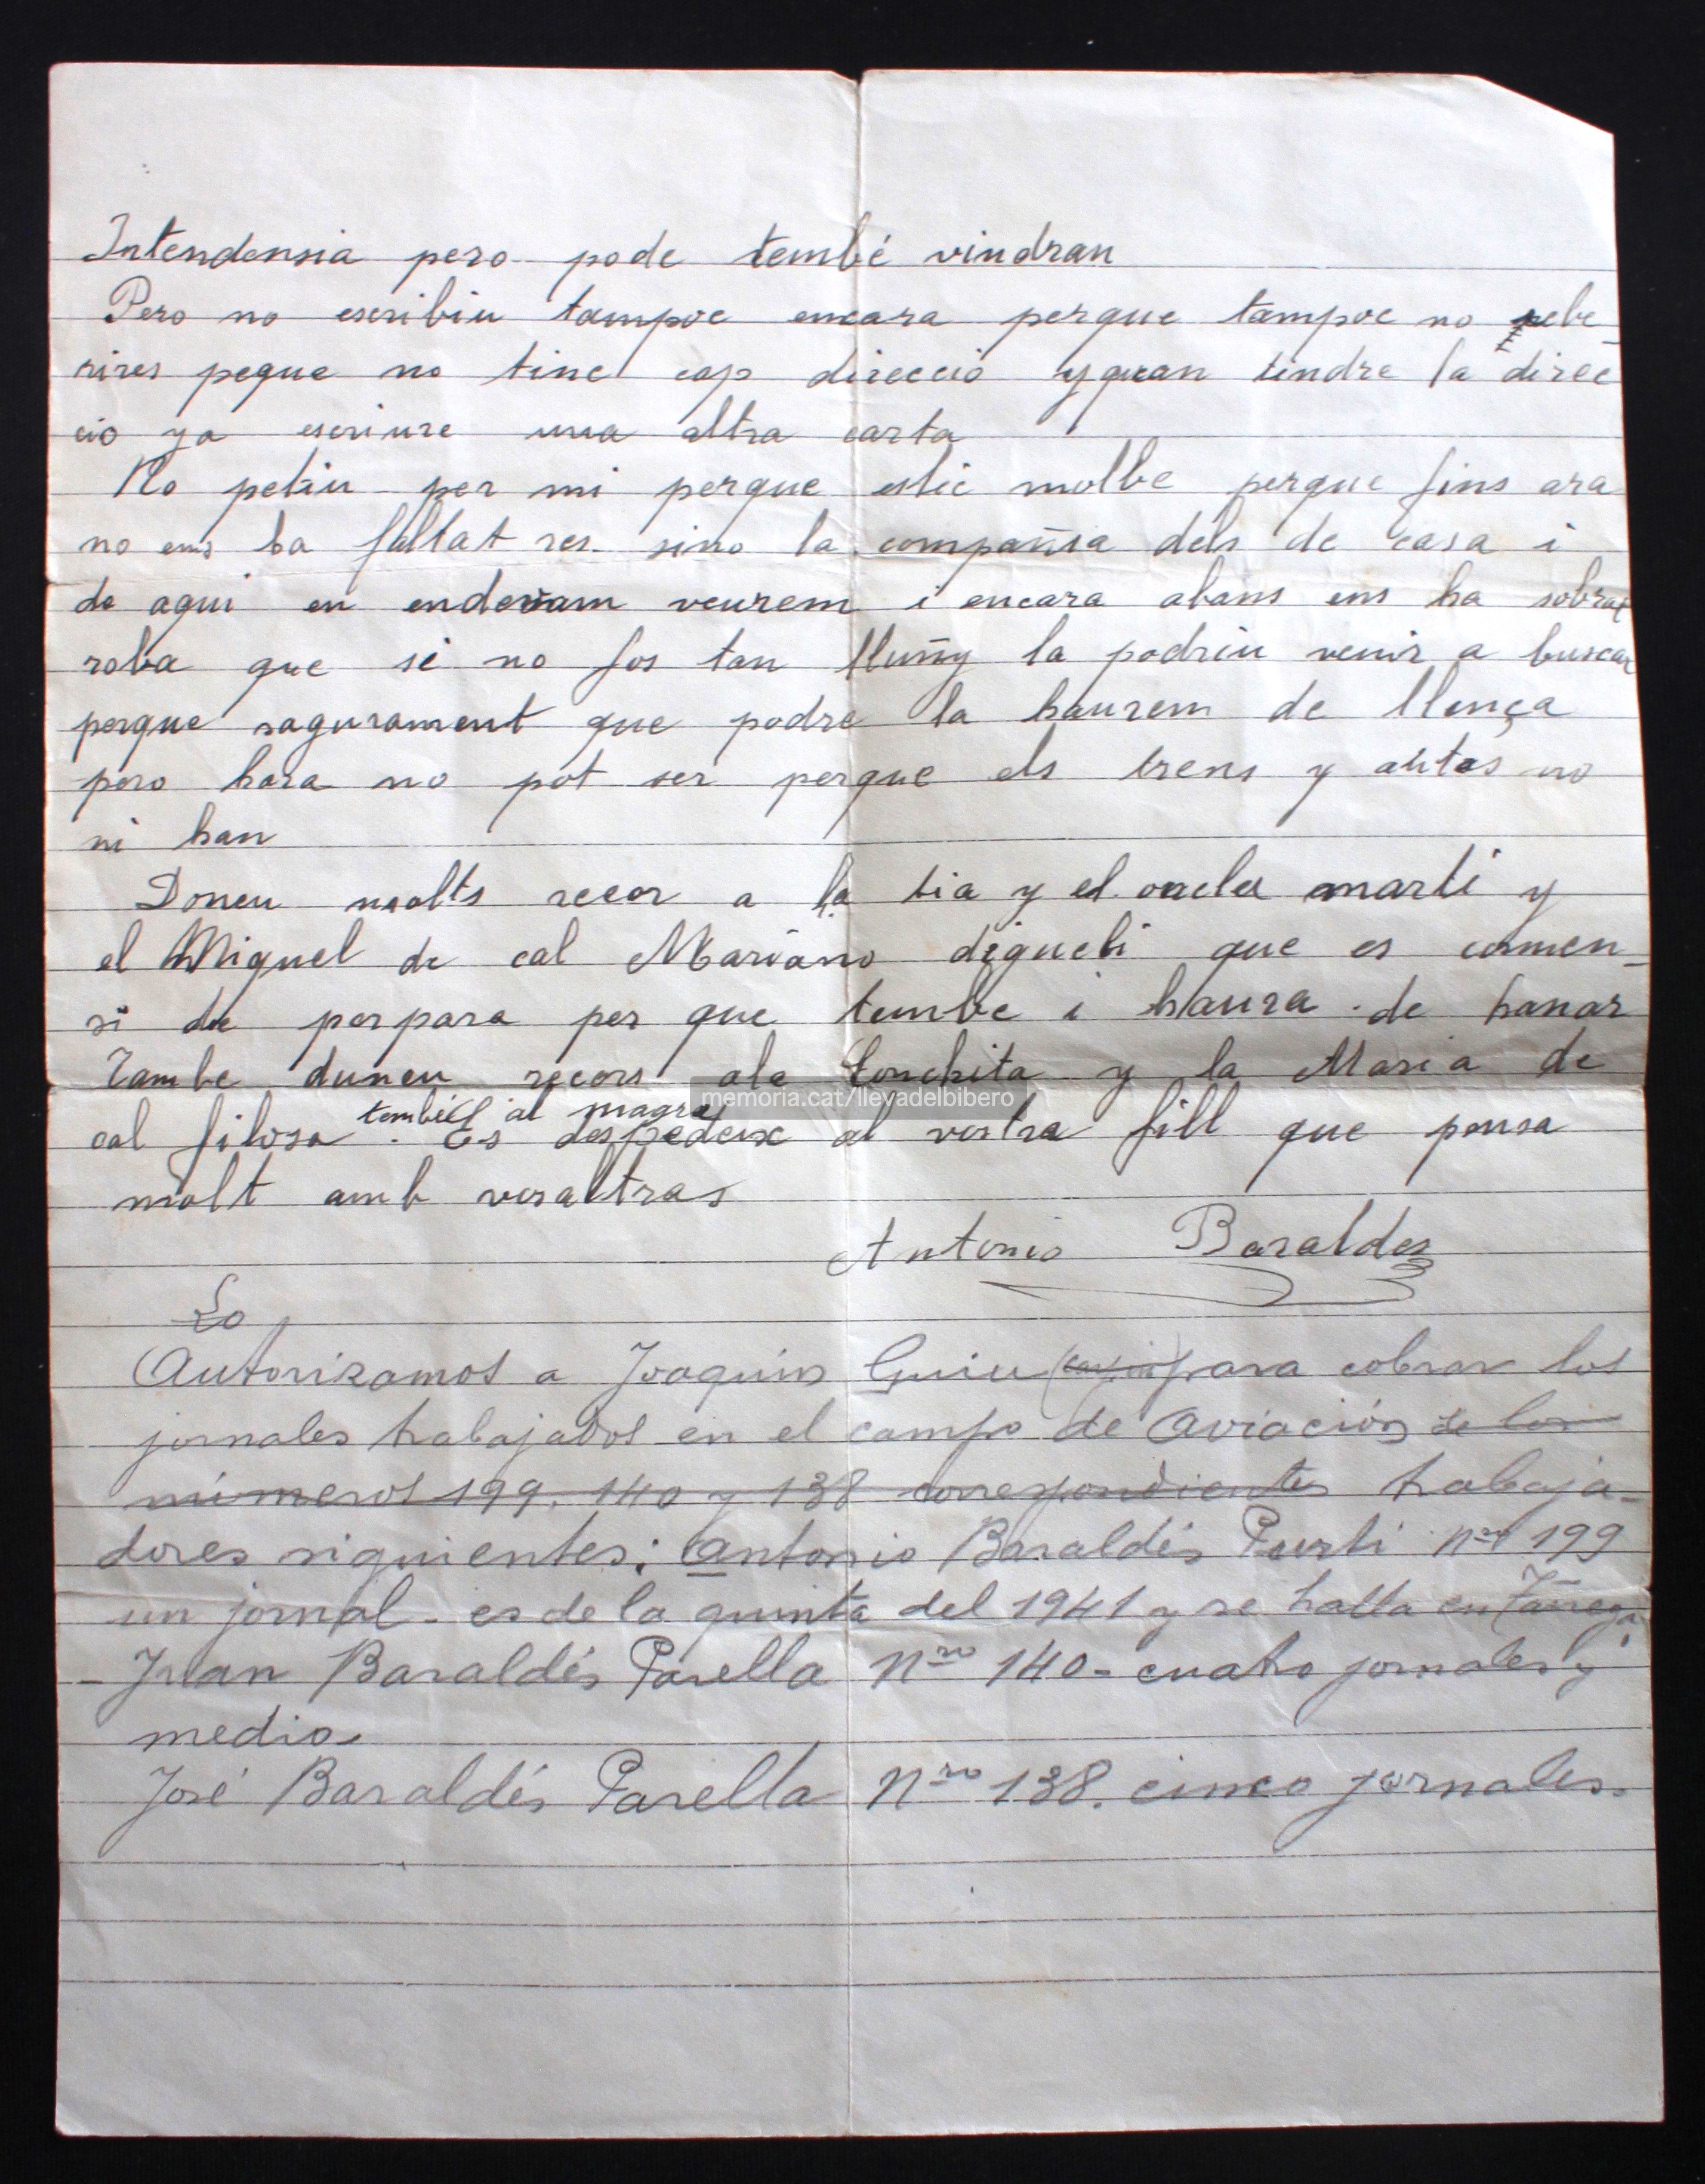 Intendensia pero pode també vindran
Pero no escribiu tampoc encara perque tampoc no rebe
rires peque no tinc cap direccio y quan tindre la direc
cio ya escriure una altra carta
No petiu per mi perque estic molbe perque fins ara
no ens ha faltat res sino la compañia dels de casa i
de aqui en endevam veurem i encara abans ens ha sobrat
roba que si no fos tan lluñy la podriu venir a buscar
perque sagurament que podre la haurem de llença
pero hara no pot ser perque els trens y autos no
ni han
Doneu molts recor a la tia y el oncle marti y
el Miquel de cal Mariano digueli que es comen-
si de perpara per que tembe i haura de hanar
Tambe duneu recors ala Conchita y la Maria de
cal filosa també al magre. Es despedeix al vostra fill que pensa
molt amb vosaltras
Antonio Baraldes
Lo
Autorizamos a Joaquin Guiu para cobrar los
jornales trabajados en el campo de Aviación de los
números 199. 140 y 138 correspondientes trabaja-
dores siguientes: Antonio Baraldés Purti nro 199
un jornal - es de la quinta del 1941 y se halla en Tárrega.
- Juan Baraldés Parella Nro 140 - cuatro jornales y
medio.
José Baraldés Parella Nro 138. cinco jornales.
memoria.cat/llevadelbibero